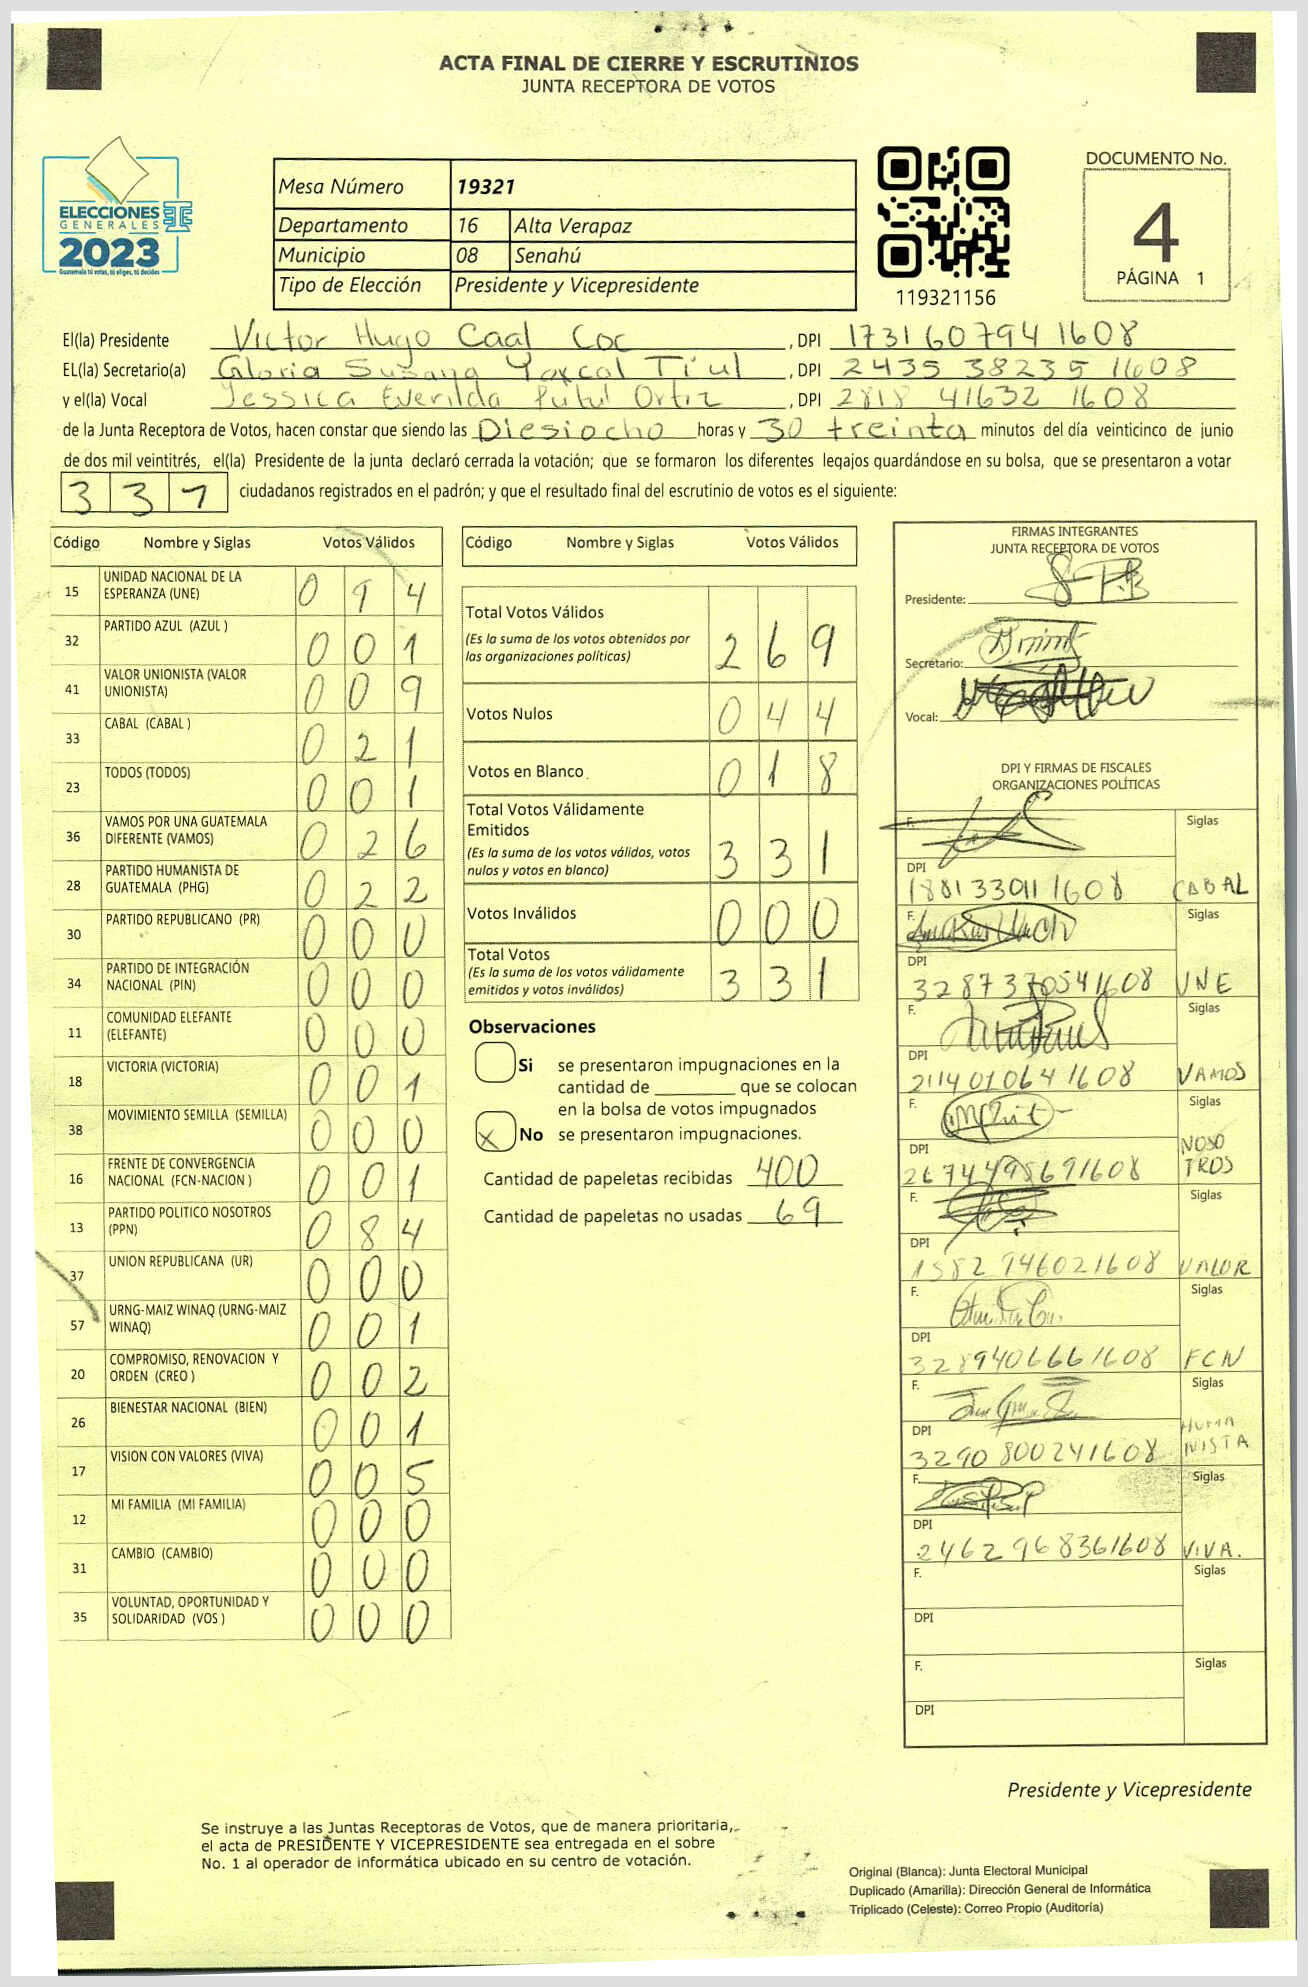 ACTA FINAL DE CIERRE Y ESCRUTINIOS
JUNTA RECEPTORA DE VOTOS
ELECCIONES
GENERALES
2023
Guatemala tú votas, tú eliges, tú decides
Mesa Número 19321
Departamento 16 Alta Verapaz
Municipio 08 Senahú
Tipo de Elección Presidente y Vicepresidente
119321156
DOCUMENTO No.
4
PÁGINA 1
El(la) Presidente Victor Hugo Caal Coc , DPI 1731607941608
EL(la) Secretario(a) Gloria Susana Yaxcal Tiul , DPI 2435 38235 1608
y el(la) Vocal Jessica Everilda Putul Ortiz , DPI 2818 41632 1608
de la Junta Receptora de Votos, hacen constar que siendo las Diesiocho horas y 30 treinta minutos del día veinticinco de junio
de dos mil veintitrés, el(la) Presidente de la junta declaró cerrada la votación; que se formaron los diferentes legajos guardándose en su bolsa, que se presentaron a votar
337 ciudadanos registrados en el padrón; y que el resultado final del escrutinio de votos es el siguiente:
Código Nombre y Siglas Votos Válidos
15 UNIDAD NACIONAL DE LA ESPERANZA (UNE) 0 9 4
32 PARTIDO AZUL (AZUL ) 0 0 1
41 VALOR UNIONISTA (VALOR UNIONISTA) 0 0 9
33 CABAL (CABAL ) 0 2 1
23 TODOS (TODOS) 0 0 1
36 VAMOS POR UNA GUATEMALA DIFERENTE (VAMOS) 0 2 6
28 PARTIDO HUMANISTA DE GUATEMALA (PHG) 0 2 2
30 PARTIDO REPUBLICANO (PR) 0 0 0
34 PARTIDO DE INTEGRACIÓN NACIONAL (PIN) 0 0 0
11 COMUNIDAD ELEFANTE (ELEFANTE) 0 0 0
18 VICTORIA (VICTORIA) 0 0 1
38 MOVIMIENTO SEMILLA (SEMILLA) 0 0 0
16 FRENTE DE CONVERGENCIA NACIONAL (FCN-NACION ) 0 0 1
13 PARTIDO POLITICO NOSOTROS (PPN) 0 8 4
37 UNION REPUBLICANA (UR) 0 0 0
57 URNG-MAIZ WINAQ (URNG-MAIZ WINAQ) 0 0 1
20 COMPROMISO, RENOVACION Y ORDEN (CREO ) 0 0 2
26 BIENESTAR NACIONAL (BIEN) 0 0 1
17 VISION CON VALORES (VIVA) 0 0 5
12 MI FAMILIA (MI FAMILIA) 0 0 0
31 CAMBIO (CAMBIO) 0 0 0
35 VOLUNTAD, OPORTUNIDAD Y SOLIDARIDAD (VOS ) 0 0 0
Código Nombre y Siglas Votos Válidos
Total Votos Válidos 2 6 9
(Es la suma de los votos obtenidos por
las organizaciones políticas)
Votos Nulos 0 4 4
Votos en Blanco 0 1 8
Total Votos Válidamente
Emitidos 3 3 1
(Es la suma de los votos válidos, votos
nulos y votos en blanco)
Votos Inválidos 0 0 0
Total Votos 3 3 1
(Es la suma de los votos válidamente
emitidos y votos inválidos)
Observaciones
Si se presentaron impugnaciones en la
cantidad de que se colocan
en la bolsa de votos impugnados
X No se presentaron impugnaciones.
Cantidad de papeletas recibidas 400
Cantidad de papeletas no usadas 69
FIRMAS INTEGRANTES
JUNTA RECEPTORA DE VOTOS
Presidente:
Secretario:
Vocal:
DPI Y FIRMAS DE FISCALES
ORGANIZACIONES POLÍTICAS
F. Siglas
DPI
1881330111608 CABAL
F. Siglas
DPI
3287370541608 UNE
F. Siglas
DPI
2114010641608 VAMOS
F. Siglas
DPI NOSO
2674495691608 TROS
F. Siglas
DPI
1582946021608 VALOR
F. Siglas
DPI
3289406661608 FCN
F. Siglas
DPI HUMA
3290800241608 NISTA
F. Siglas
DPI
2462968361608 VIVA.
F. Siglas
DPI
F. Siglas
DPI
Presidente y Vicepresidente
Se instruye a las Juntas Receptoras de Votos, que de manera prioritaria,
el acta de PRESIDENTE Y VICEPRESIDENTE sea entregada en el sobre
No. 1 al operador de informática ubicado en su centro de votación.
Original (Blanca): Junta Electoral Municipal
Duplicado (Amarilla): Dirección General de Informática
Triplicado (Celeste): Correo Propio (Auditoría)